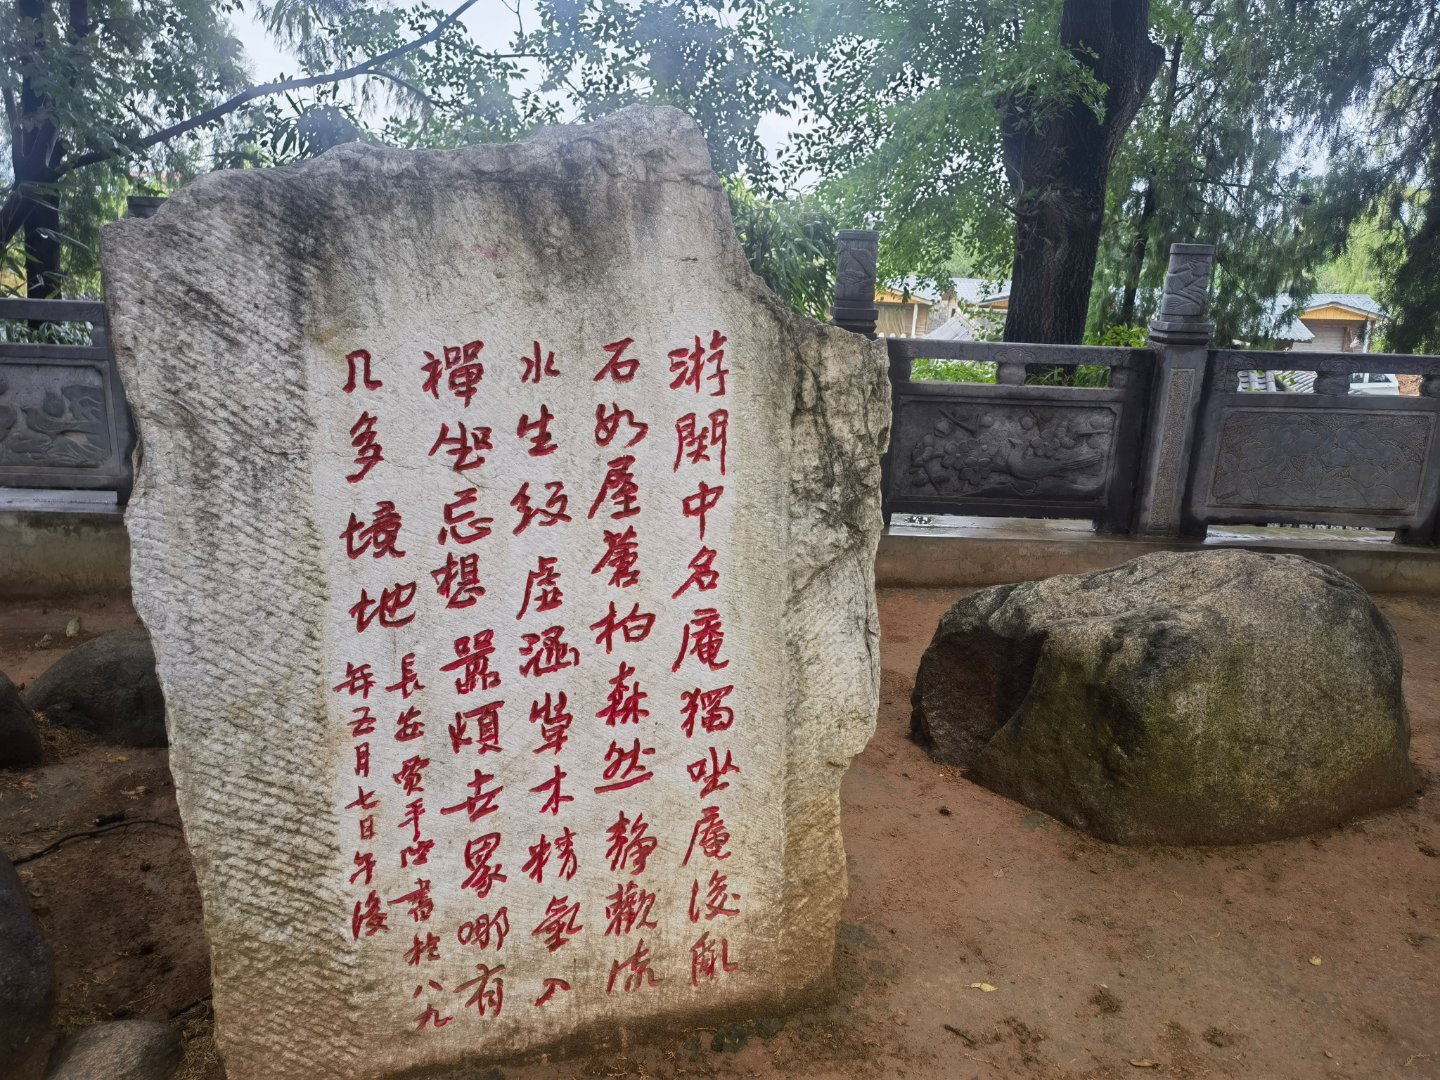 游関中名庵獨坐庵後亂
石如屋蒼柏森然静觀流
水生紋虚涵草木精氣入
禪坐忘想囂煩世界哪有
几多境地
長安賈平凹書於八九
年五月七日午後